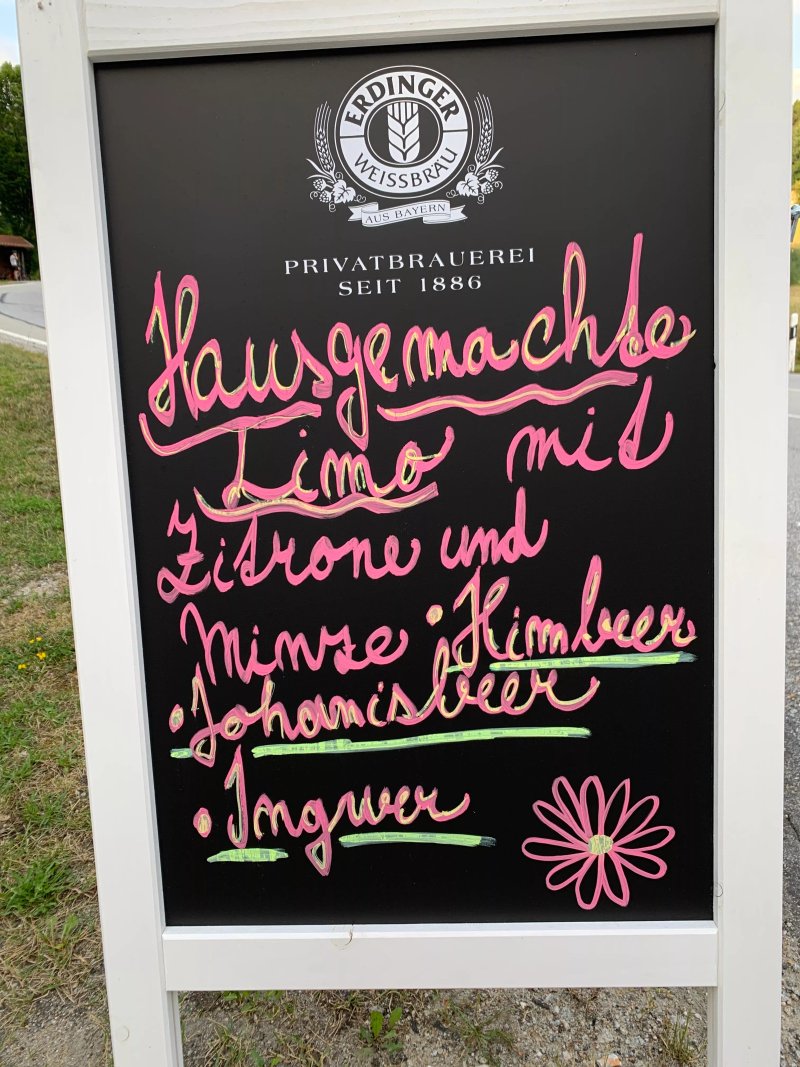 ERDINGER
WEISSBRÄU
AUS BAYERN
PRIVATBRAUEREI
SEIT 1886
Hausgemachte
Limo mit
Zitrone und
Minze • Himbeer
• Johanisbeer
• Ingwer